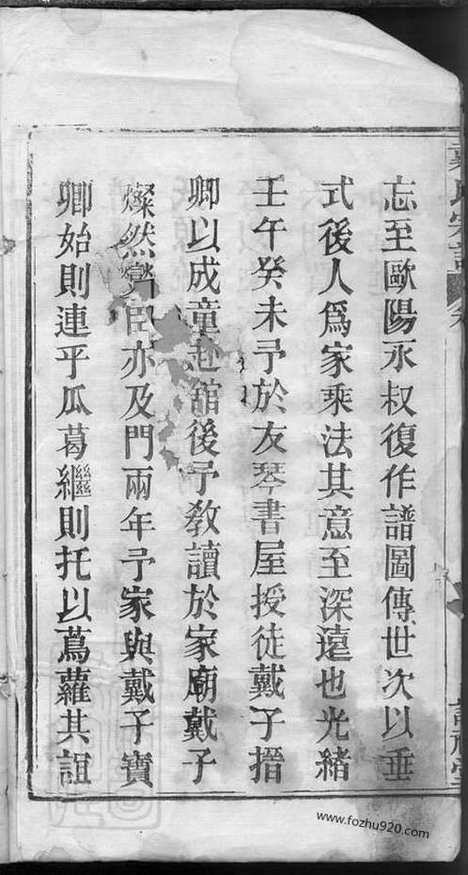 忘至歐陽永叔復作譜圖傳世次以垂
式後人爲家乘法其意至深遠也光緒
壬午癸未予於友琴書屋授徒戴子搢
卿以成童赴館後予敎讀於家廟戴子
燦然臣亦及門兩年予家與戴子寶
卿始則連乎瓜葛繼則托以蔦蘿其誼
www.fozhu920.com